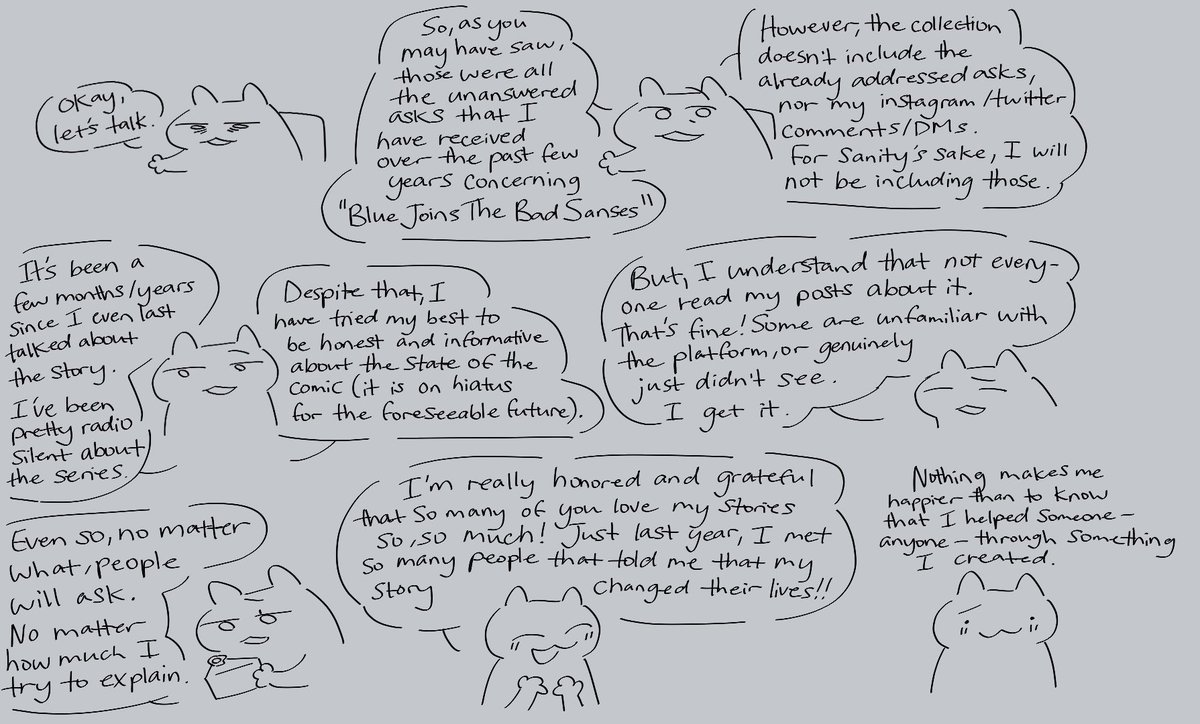 Okay,
let's talk.
So, as you
may have saw,
those were all
the unanswered
asks that I
have received
over the past few
years concerning
"Blue Joins The Bad Sanses"
However, the collection
doesn't include the
already addressed asks,
nor my instagram/twitter
comments/DMs.
For Sanity's sake, I will
not be including those.
It's been a
few months/years
since I even last
talked about
the story.
I've been
pretty radio
silent about
the series.
Despite that, I
have tried my best to
be honest and informative
about the state of the
comic (it is on hiatus
for the foreseeable future).
But, I understand that not every-
one read my posts about it.
That's fine! Some are unfamiliar with
the platform, or genuinely
just didn't see.
I get it.
Even so, no matter
what, people
will ask.
No matter
how much I
try to explain.
I'm really honored and grateful
that so many of you love my stories
so, so much! Just last year, I met
so many people that told me that my
story changed their lives!!
Nothing makes me
happier than to know
that I helped someone-
anyone- through something
I created.